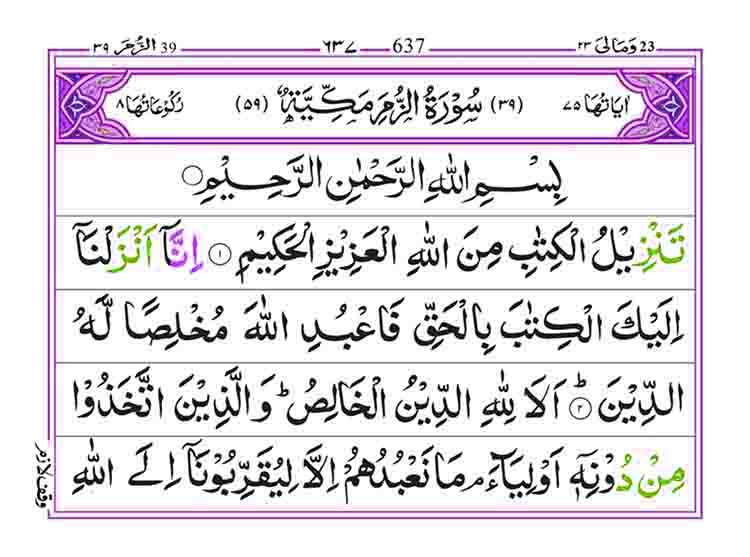 39 الزُّمَر ٣٩ 637 ٦٣٧ 23 وَمَالِىَ ٢٣
اٰيَاتُهَا ٧٥ (٣٩) سُوْرَةُ الزُّمَرِ مَكِّيَّةٌ (٥٩) رُكُوْعَاتُهَا ٨
بِسْمِ اللّٰهِ الرَّحْمٰنِ الرَّحِيْمِ
تَنْزِيْلُ الْكِتٰبِ مِنَ اللّٰهِ الْعَزِيْزِ الْحَكِيْمِ ١ اِنَّاۤ اَنْزَلْنَاۤ
اِلَيْكَ الْكِتٰبَ بِالْحَقِّ فَاعْبُدِ اللّٰهَ مُخْلِصًا لَّهُ
الدِّيْنَ ٢ؕ اَلَا لِلّٰهِ الدِّيْنُ الْخَالِصُ ؕ وَالَّذِيْنَ اتَّخَذُوْا
مِنْ دُوْنِهٖۤ اَوْلِيَآءَ ۘ مَا نَعْبُدُهُمْ اِلَّا لِيُقَرِّبُوْنَاۤ اِلَى اللّٰهِ
وقف لازم